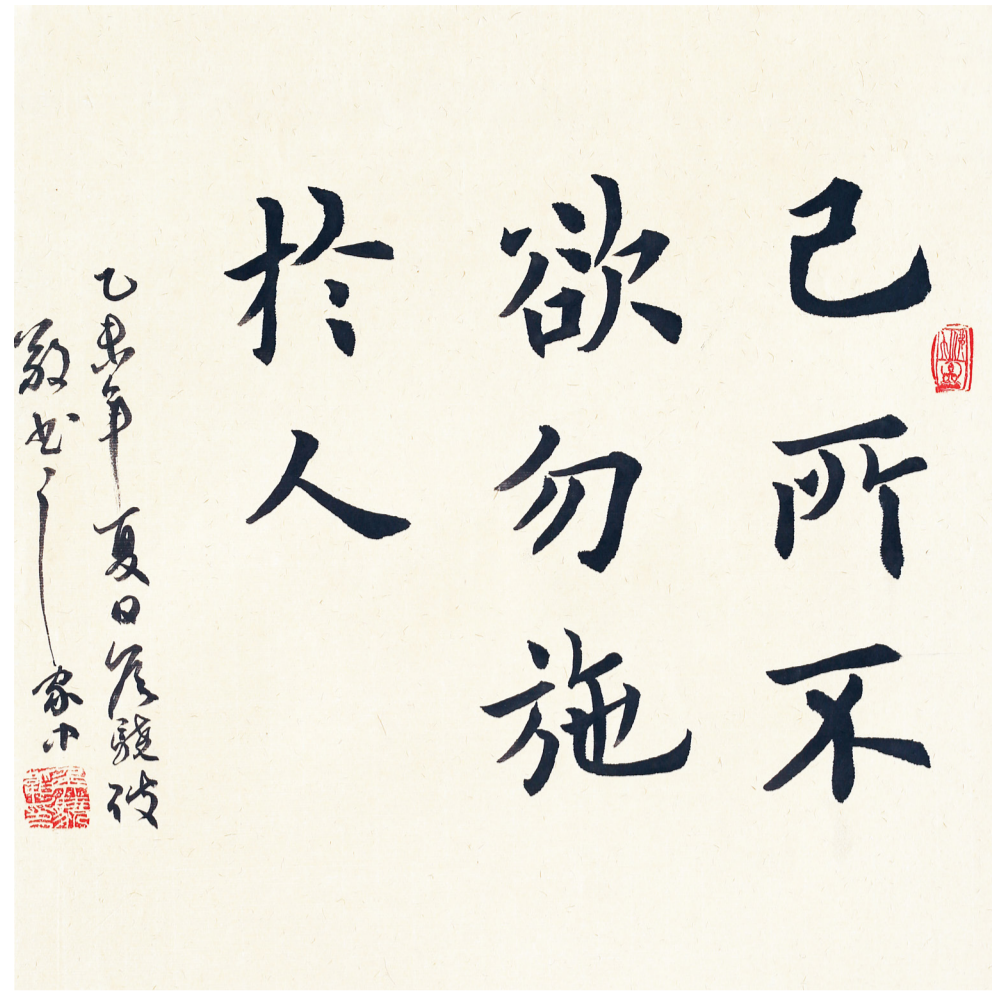 己所不
欲勿施
於人
乙未年夏日
敬书